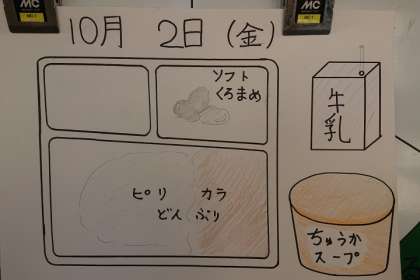 MC
MC
10月 2日(金)
ソフト
くろまめ
牛
乳
ピリ カラ
どんぶり
ちゅうか
スープ